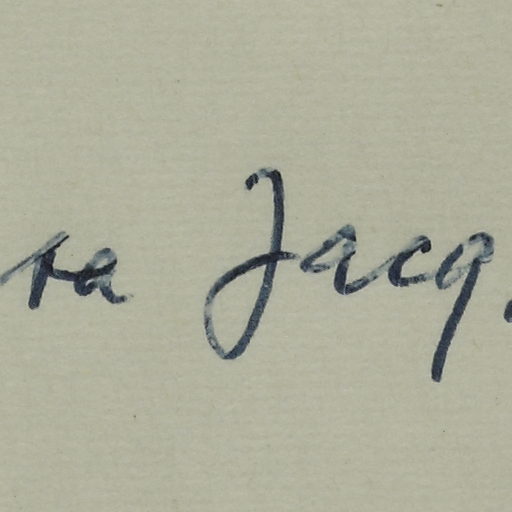 ra Jacq.